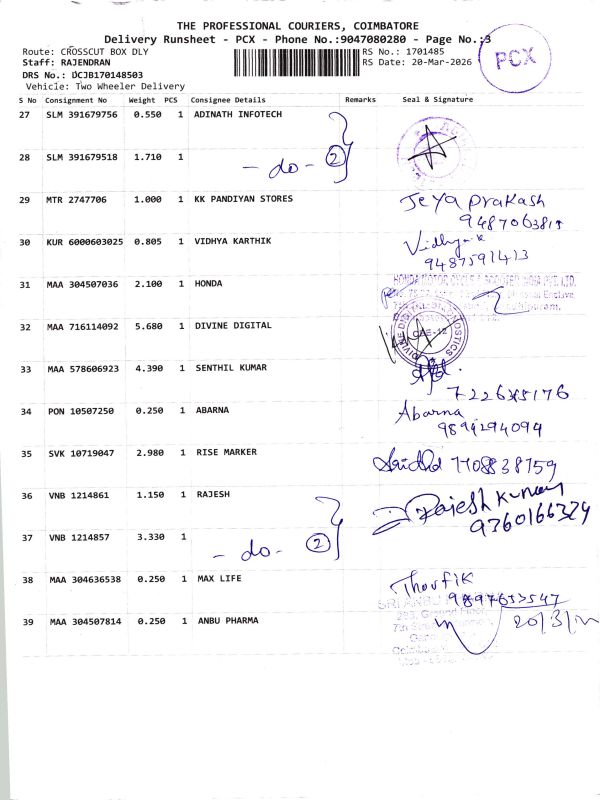 THE PROFESSIONAL COURIERS, COIMBATORE
Delivery Runsheet - PCX - Phone No.:9047080280 - Page No.:3
Route: CROSSCUT BOX DLY
RS No.: 1701485
Staff: RAJENDRAN
RS Date: 20-Mar-2026
DRS No.: UCJB170148503
Vehicle: Two Wheeler Delivery
PCX
S No Consignment No Weight PCS Consignee Details Remarks Seal & Signature
27 SLM 391679756 0.550 1 ADINATH INFOTECH
28 SLM 391679518 1.710 1 - do - 2
29 MTR 2747706 1.000 1 KK PANDIYAN STORES Jeya Prakash
30 KUR 6000603025 0.805 1 VIDHYA KARTHIK
9487591413
31 MAA 304507036 2.100 1 HONDA
32 MAA 716114092 5.680 1 DIVINE DIGITAL
33 MAA 578606923 4.390 1 SENTHIL KUMAR
34 PON 10507250 0.250 1 ABARNA Abarna
35 SVK 10719047 2.980 1 RISE MARKER
36 VNB 1214861 1.150 1 RAJESH Rajesh kumar
9360166324
37 VNB 1214857 3.330 1 - do - 2
38 MAA 304636538 0.250 1 MAX LIFE Thoufik
39 MAA 304507814 0.250 1 ANBU PHARMA